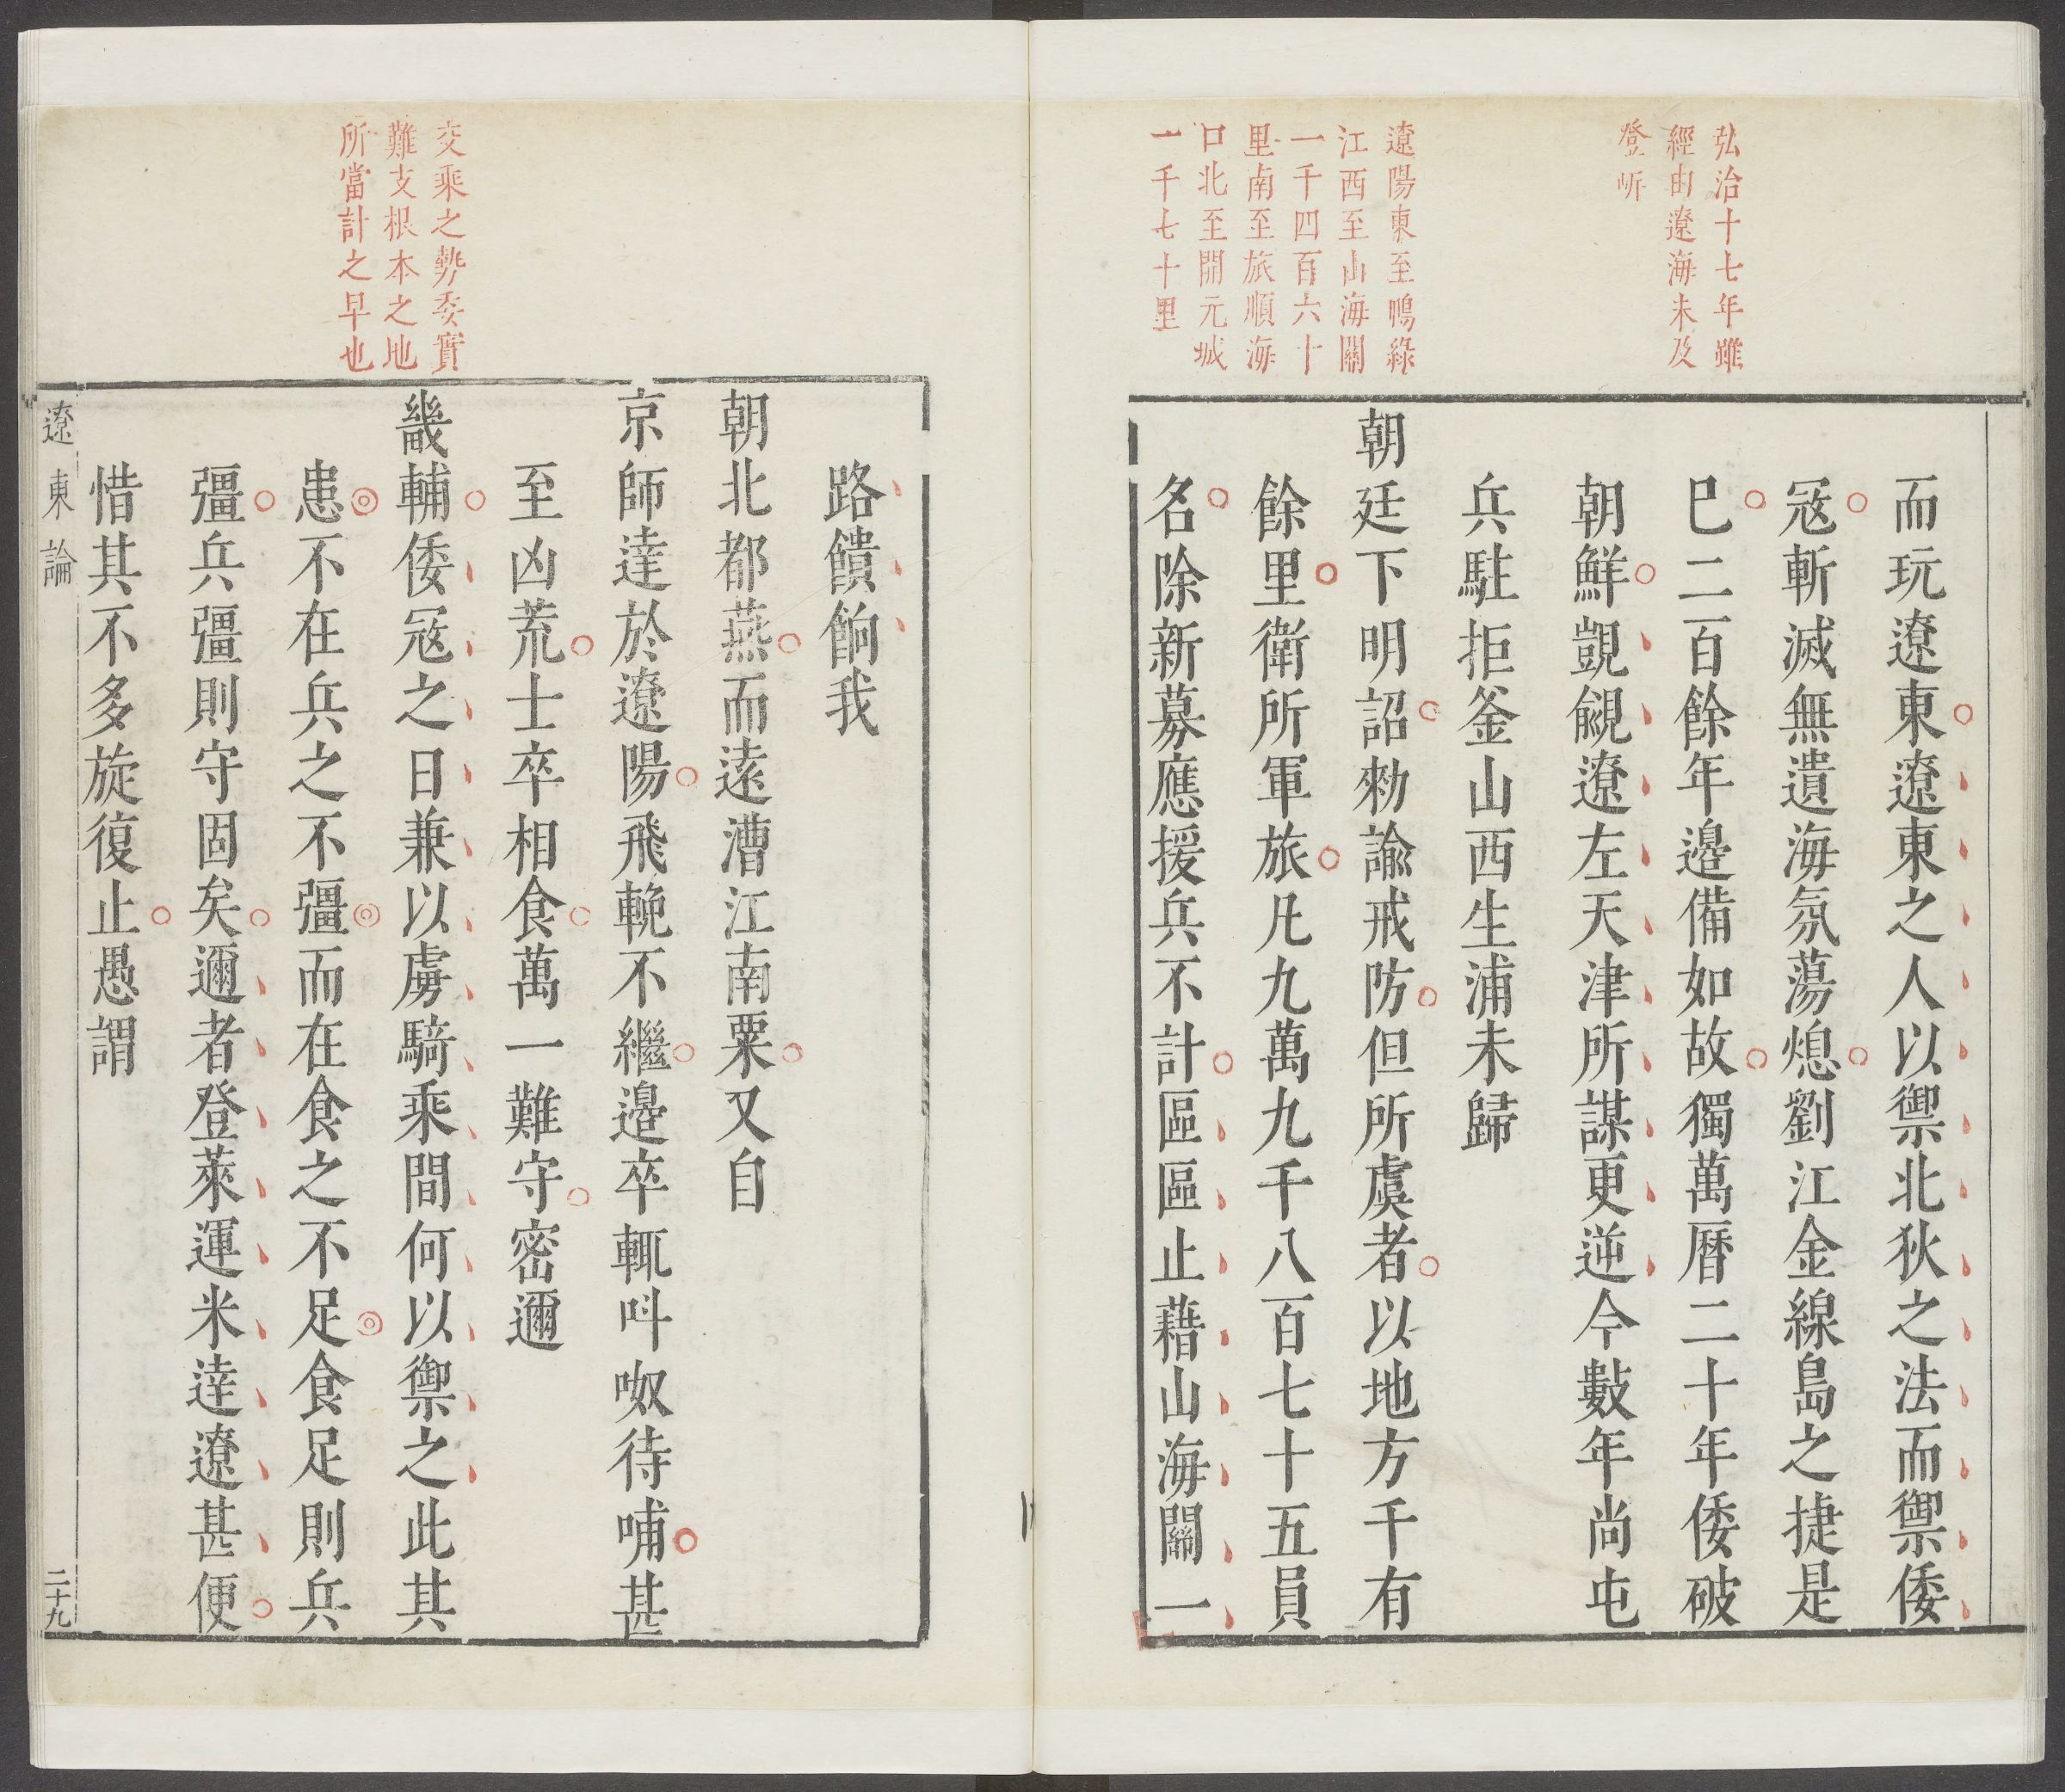 弘治十七年雖
經由遼海未及
登岍
遼陽東至鴨綠
江西至山海關
一千四百六十
里南至旅順海
口北至開元城
一千七十里
而玩遼東遼東之人以禦北狄之法而禦倭
冦斬滅無遺海氛蕩熄劉江金線島之捷是
巳二百餘年邊備如故獨萬曆二十年倭破
朝鮮覬覦遼左天津所謀更逆今數年尚屯
兵駐拒釜山西生浦未歸
朝廷下明詔勑諭戒防但所虞者以地方千有
餘里衛所軍旅凡九萬九千八百七十五員
名除新募應援兵不計區區止藉山海關一
交乘之勢委實
難支根本之地
所當計之早也
路饋餉我
朝北都燕而逺漕江南粟又自
京師達於遼陽飛輓不繼邊卒輒呌呶待哺甚
至凶荒士卒相食萬一難守密邇
畿輔倭冦之日兼以虜騎乘間何以禦之此其
患不在兵之不彊而在食之不足食足則兵
彊兵彊則守固矣邇者登萊運米達遼甚便
惜其不多旋復止愚謂
遼東論
二十九